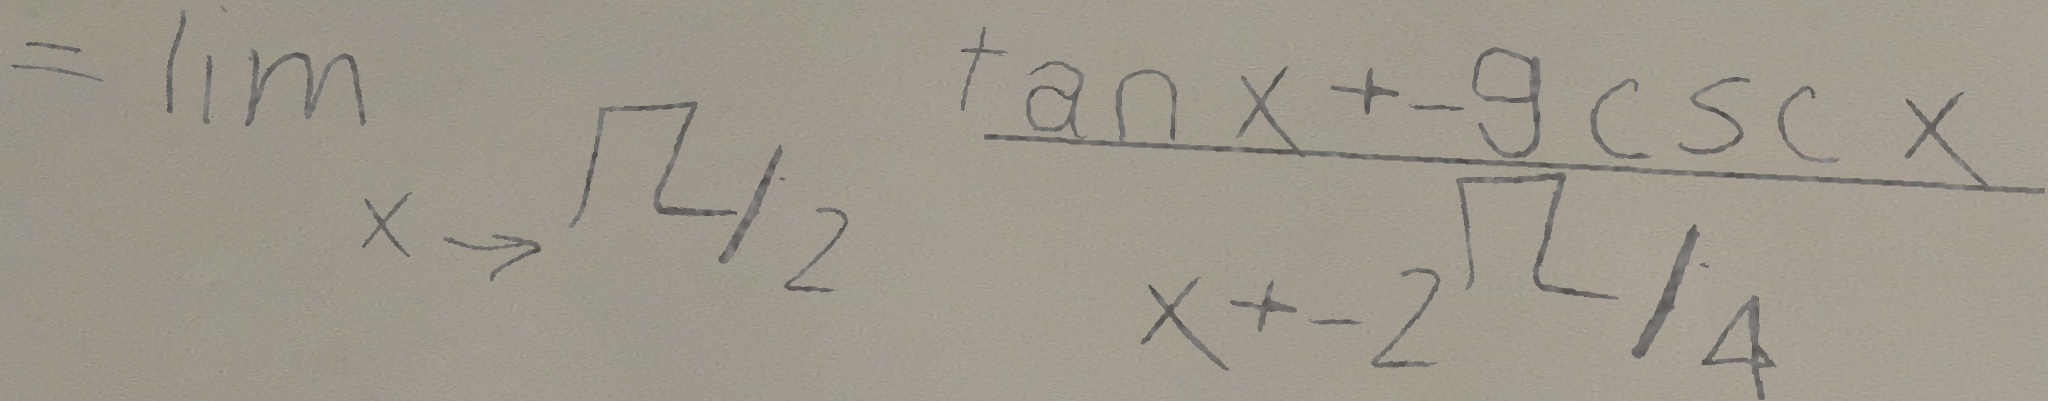 = lim x → π/2 (tan x + -9 csc x) / (x + -2π/4)